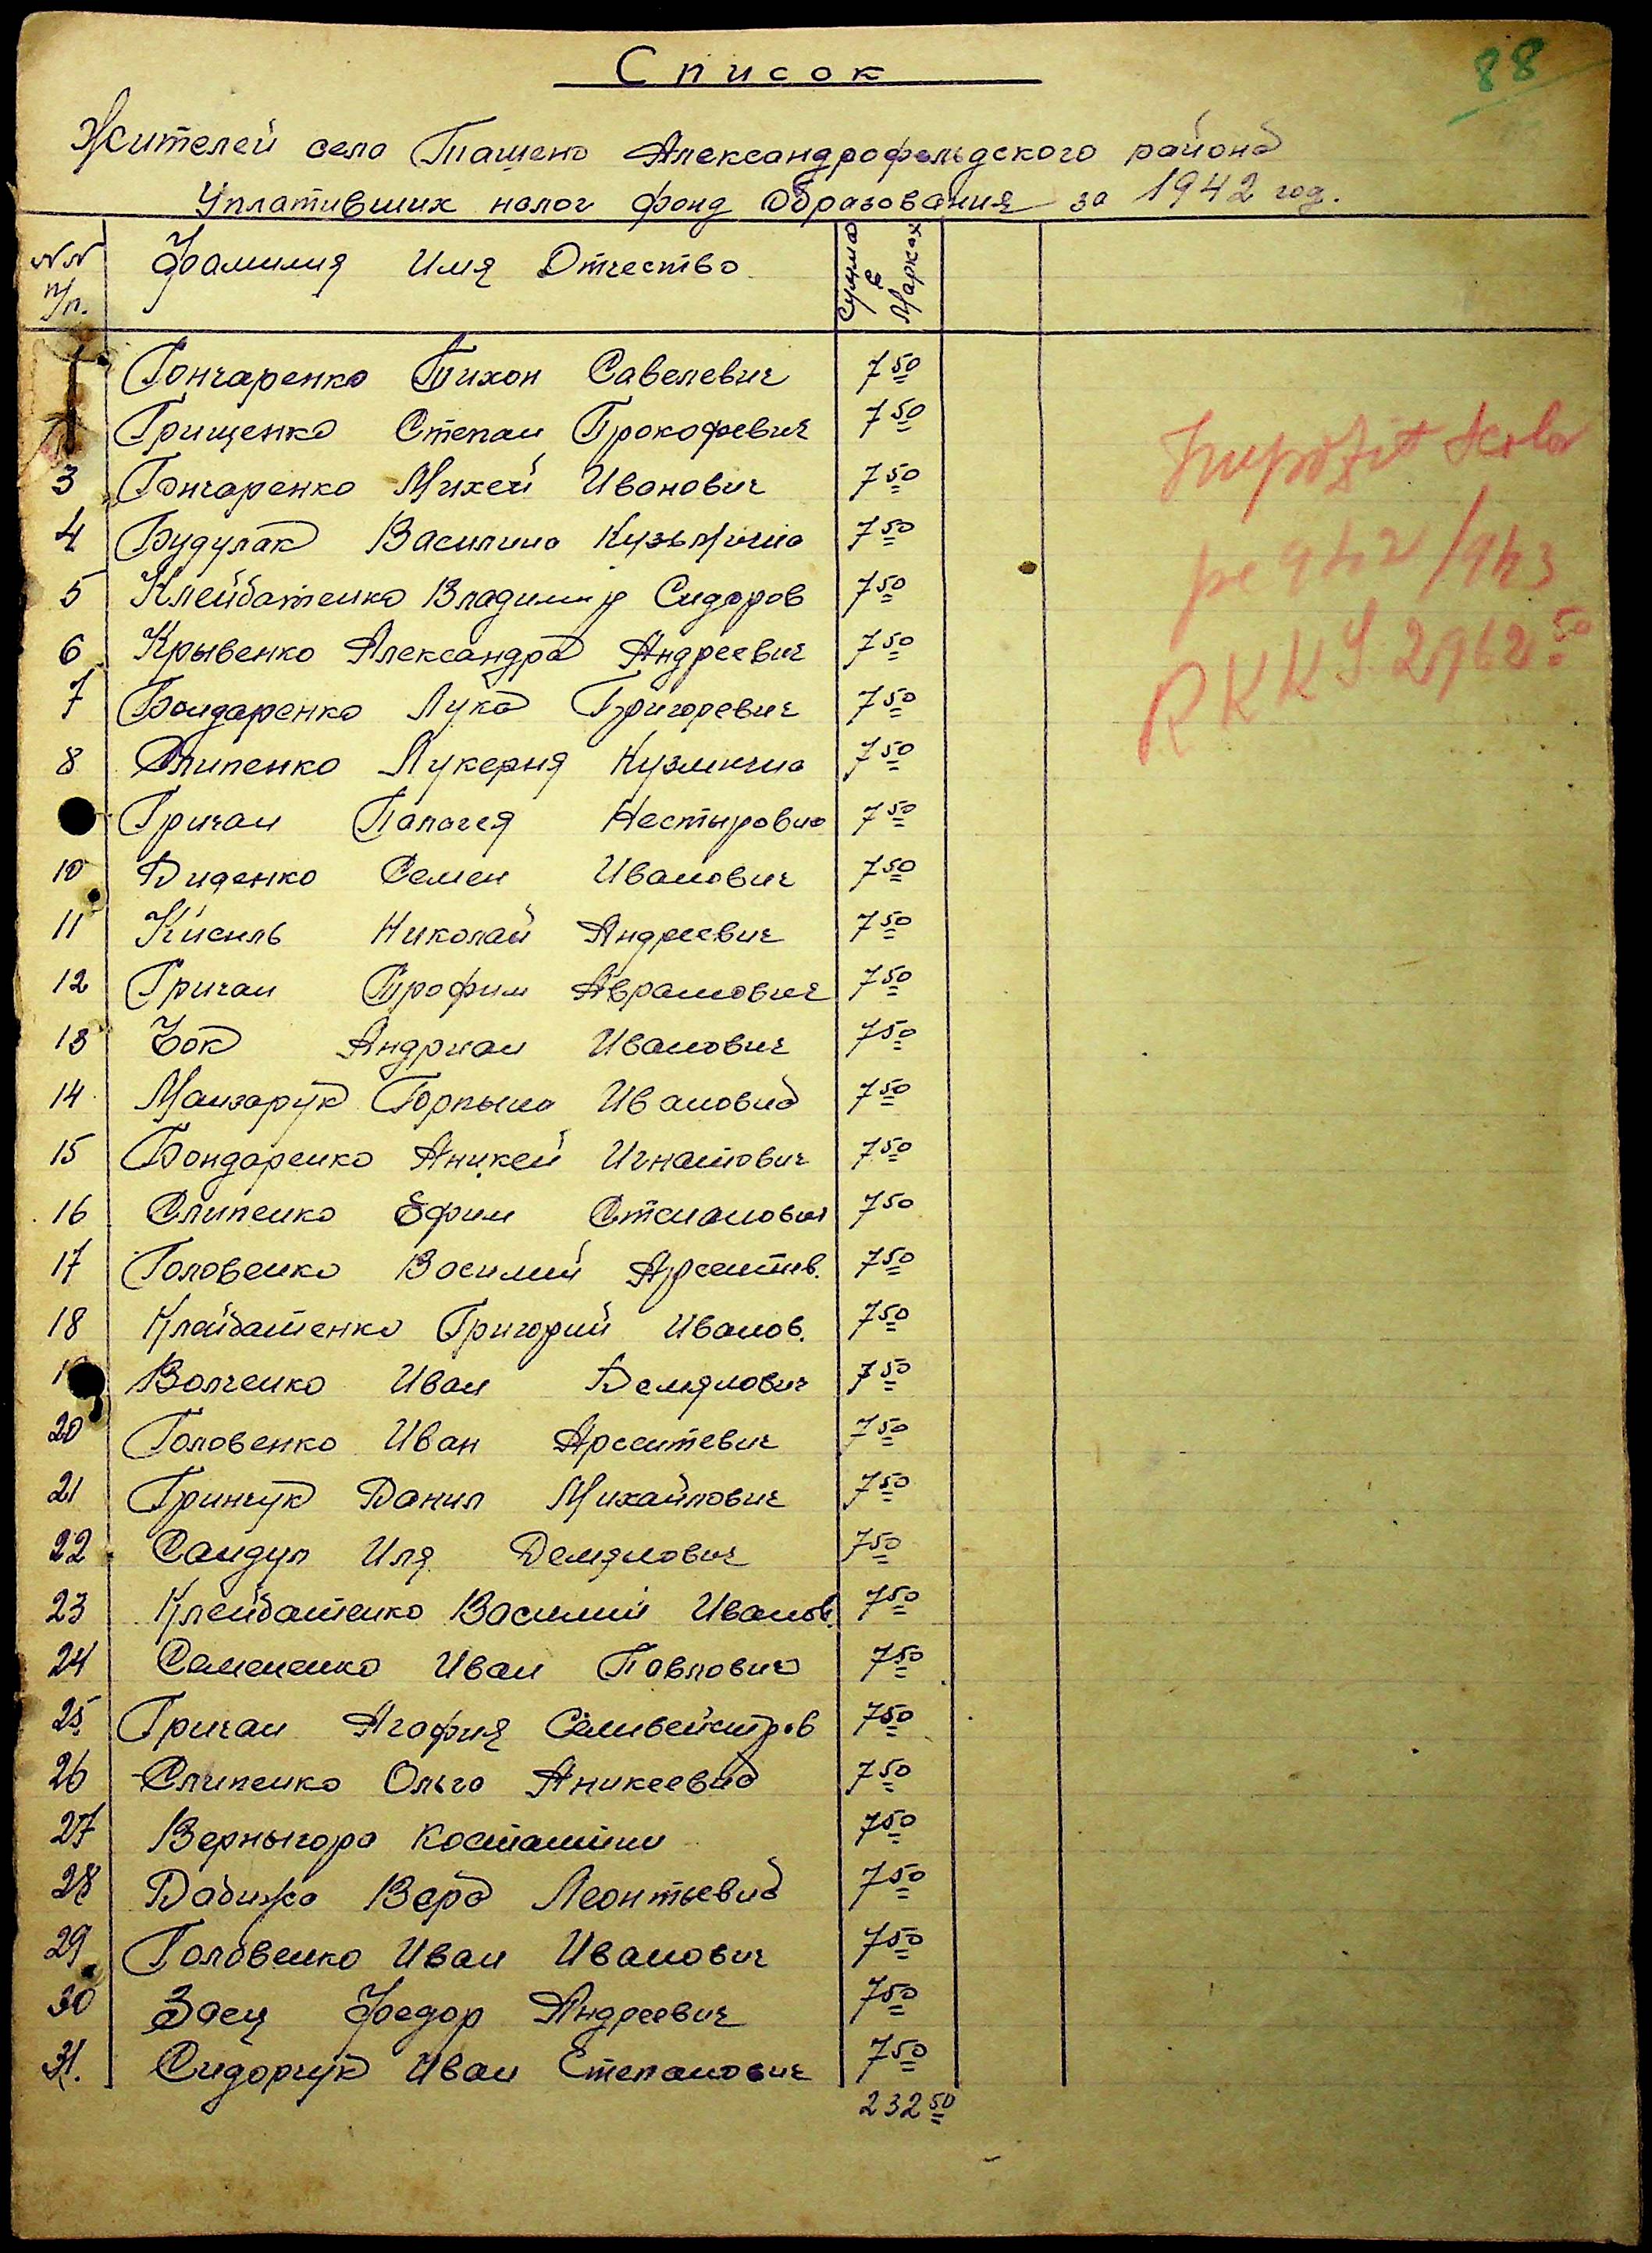 Список
88
Жителей села Ташено Александрофельдского района
Уплативших налог фонд образования за 1942 год.
№№ п/п. Фамилия Имя Отчество Сумма в Марках
1 Гончаренко Тихон Савелевич 7 50
Грищенко Степан Прокофевич 7 50
3 Гончаренко Михей Иванович 7 50
4 Будулак Василина Кузьмична 7 50
5 Клейбатенко Владимир Сидоров 7 50
6 Крывенко Александра Андреевич 7 50
7 Бондаренко Лука Григоревич 7 50
8 Слипенко Лукерия Кузмична 7 50
Гричан Палагея Нестыровна 7 50
10 Диденко Семен Иванович 7 50
11 Кисиль Николай Андреевич 7 50
12 Гричан Трофим Аврамович 7 50
13 Андриан Иванович 7 50
14 Манзарук Горпына Ивановна 7 50
15 Бондаренко Аникей Игнатович 7 50
16 Слипенко Ефим Степанович 7 50
17 Головенко Василий Арсентив. 7 50
18 Клейбатенко Григорий Иванов. 7 50
Волченко Иван Демянович 7 50
20 Головенко Иван Арсентевич 7 50
21 Гринчук Данил Михайлович 7 50
22 Сандул Иля Демянович 7 50
23 Клейбатенко Василий Иванов. 7 50
24 Семененко Иван Павлович 7 50
25 Гричан Агафия Селивейстров 7 50
26 Слипенко Ольга Аникеевна 7 50
27 Верныгора Костантин 7 50
28 Дабижа Вера Леонтьевна 7 50
29 Головенко Иван Иванович 7 50
30 Заец Федор Андреевич 7 50
31. Сидорчук Иван Степанович 7 50
232 50
Impozit scolar
pe 942/943
RKKS 2962 50